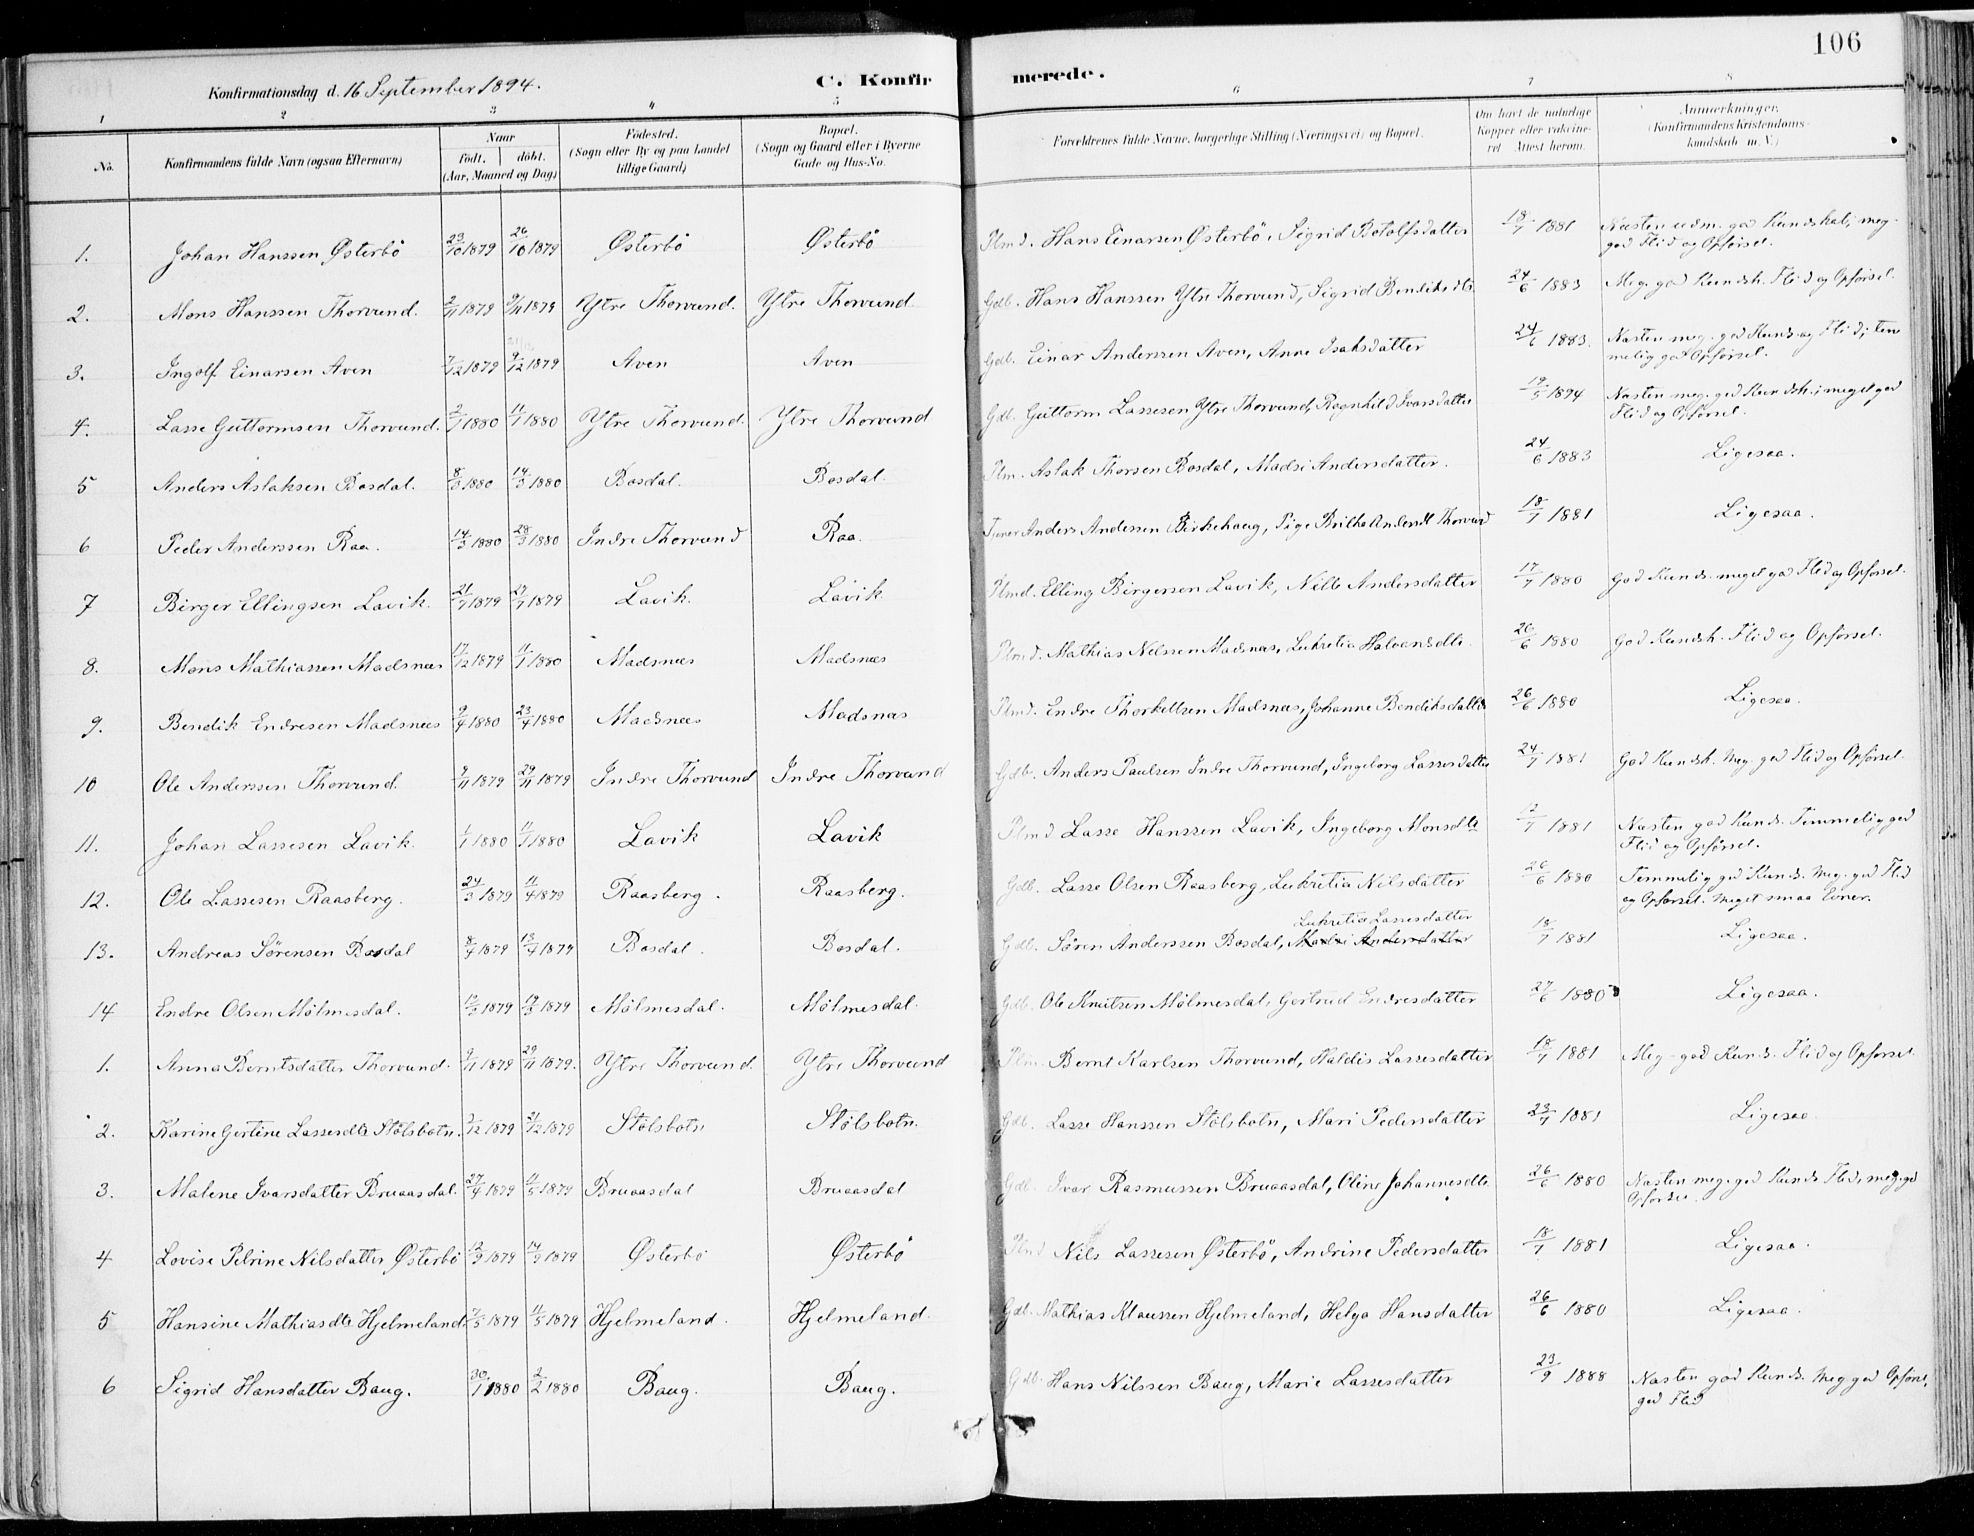 106
Konfirmationsdag d. 16 September 1894. C. Konfirmerede.
1 2 3 4 5 6 7 8
No. Konfirmandens fulde Navn (ogsaa Efternavn) Naar födt. döbt. (Aar, Maaned og Dag) Födested. (Sogn eller By og paa Landet tillige Gaard) Bopæl. (Sogn og Gaard eller i Byerne Gade og Hus-No. Forældrenes fulde Navne, borgerlige Stilling (Næringsvei) og Bopæl. Om havt de naturlige Kopper eller vakcineret. Attest herom. Anmærkninger. (Konfirmandens Kristendomskundskab m. V.)
1. Johan Hanssen Østerbö 23/10 1879 26/10 1879 Østerbö Østerbö Plmd. Hans Einarsen Østerbö, Sigrid Botolfsdatter 18/7 1881 Næsten udm. god Kundskab, meg. god Flid og Opförsel.
2. Mons Hanssen Thorvund. 2/11 1879 9/11 1879 Ytre Thorvund. Ytre Thorvund. Gdb. Hans Hanssen Ytre Thorvund, Sigrid Bendiksdtr 24/6 1883 Meg. god Kundsk. Flid og Opförsel.
3. Ingolf Einarsen Aven 7/12 1879 9/12 1879 Aven Aven Gdb. Einar Anderssen Aven, Anne Isaksdatter 24/6 1883. Næsten meg. god Kunds. og Flid; temmelig god Opförsel.
4. Lasse Guttormsen Thorvund. 2/1 1880 11/1 1880 Ytre Thorvund. Ytre Thorvund Gdb. Guttorm Lassesen Ytre Thorvund, Ragnhild Ivarsdatter 19/5 1894 Næsten meg. god Kundsk.; meget god Flid og Opförsel.
5 Anders Aslaksen Bosdal. 8/3 1880 14/3 1880 Bosdal. Bosdal. Plm. Aslak Thorsen Bosdal, Madsi Andersdatter. 24/6 1883 Ligesaa.
6 Peder Anderssen Raa. 14/3 1880 28/3 1880 Indre Thorvund Raa. Tjener Anders Anderssen Birkehaug, Pige Brithe Andersdt. Thorvund 18/7 1881 Ligesaa.
7 Birger Ellingsen Lavik. 21/7 1879 27/7 1879 Lavik. Lavik Plmd. Elling Birgersen Lavik, Nille Andersdatter 17/7 1880 God Kunds. meget god Flid og Opförsel.
8. Mons Mathiassen Madsnæs 17/12 1879 11/1 1880 Madsnæs Madsnæs Plmd. Mathias Nilssen Madsnæs, Lukretia Halvorsdtr. 26/6 1880 God Kundsk. Flid og Opförsel.
9. Bendik Endresen Madsnæs 9/4 1880 23/4 1880 Madsnæs Madsnæs Plmd. Endre Thorkellsen Madsnæs, Johanne Bendiksdatter 26/6 1880 Ligesaa.
10 Ole Anderssen Thorvund. 9/11 1879 29/11 1879 Indre Thorvund Indre Thorvund Gdb. Anders Paulsen Indre Thorvund, Ingeborg Lassesdatter 24/7 1881 God Kundsk. Meg. god Flid og Opförsel.
11. Johan Lassesen Lavik. 1/1 1880 11/1 1880 Lavik Lavik Plmd. Lasse Hanssen Lavik, Ingeborg Monsdtr 12/7 1881 Næsten god Kunds. Temmelig god Flid og Opförsel.
12. Ole Lassesen Raasberg. 24/3 1879 11/4 1879 Raasberg. Raasberg. Gdb. Lasse Olsen Raasberg, Lukretia Nilsdatter 26/6 1880 Temmelig god Kunds. Meg. god Flid og Opförsel. Meget smaa Evner.
13. Andreas Sörensen Bosdal 8/4 1879 13/4 1879 Bosdal. Bosdal. Gdb. Sören Anderssen Bosdal, Madsi Andersdatter Lukretia Lassesdatter 18/7 1881 Ligesaa.
14 Endre Olsen Mölmesdal. 12/3 1879 19/3 1879 Mölmesdal. Mölmesdal. Gdb. Ole Knutsen Mölmesdal, Gertrud Endresdatter 27/6 1880 Ligesaa.
1. Anna Berntsdatter Thorvund. 9/11 1879 29/11 1879. Ytre Thorvund. Ytre Thorvund Plm. Bernt Karlsen Thorvund, Haldis Lassesdatter 18/7 1881 Meg. god Kunds. Flid og Opförsel.
2. Karine Gertine Lassesdtr Stölsbotn. 3/12 1879 21/12 1879 Stölsbotn Stölsbotn. Gdb. Lasse Hanssen Stölsbotn, Mari Pedersdatter 23/7 1881 Ligesaa
3. Malene Ivarsdatter Bruaasdal. 27/4 1879 11/5 1879 Bruaasdal Bruaasdal Gdb. Ivar Rasmussen Bruaasdal, Oline Johannesdtr. 26/6 1880 Næsten meg. god Kunds. Flid, meg. god Opförsel.
4 Lovise Petrine Nilsdatter Østerbö 12/9 1879 14/9 1879 Østerbö Østerbö Plmd Nils Lassesen Østerbö, Andrine Pedersdatter 18/7 1881 Ligesaa.
5 Hansine Mathiasdtr Hjelmeland. 7/5 1879 11/5 1879 Hjelmeland. Hjelmeland. Gdb. Mathias Klaussen Hjelmeland, Helga Hansdatter 26/6 1880 Ligesaa.
6 Sigrid Hansdatter Baug. 30/1 1880 2/2 1880 Baug. Baug. Gdb. Hans Nilssen Baug, Marie Lassesdatter 23/9 1888 Næsten god Kunds. Meg god Opförsel, god Flid